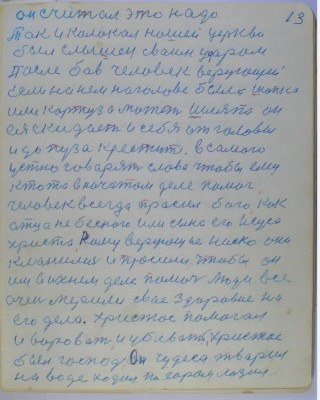 он считал это надо 13
так и колокол нашей церкви
был слышен сваим ударом
после бав человек верующей
если на нем на голове была шапка
или картуз а может шляпа он
ея скидает и себя от головы
и до пуза крестит. в самого
устно говарят слова чтобы ему
кто то в начатом деле помог
человек всегда прасил бога как
отца небесного или сына его Исуса
христа. Кому верующие ниско она
кланялися и просили, чтобы он
им в ихнем деле помоч люди все
очен мерили свае здаровие на
его дела. христос помогал
и вороват и убиват, христос
был господ Он чудеса тварил
на воде ходил по горам лазил.